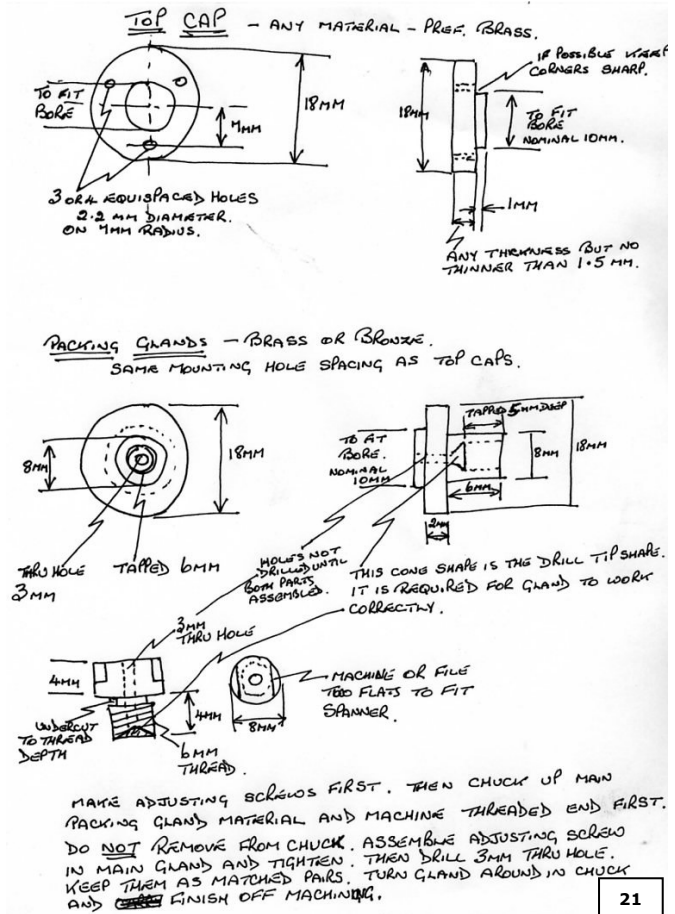 TOP CAP - ANY MATERIAL - PREF. BRASS.
IF POSSIBLE KEEP
CORNERS SHARP.
TO FIT
BORE
7MM
18MM
18MM
TO FIT
BORE
NOMINAL 10MM.
1MM
3 OR 4 EQUISPACED HOLES
2.2 MM DIAMETER.
ON 7MM RADIUS.
ANY THICKNESS BUT NO
THINNER THAN 1.5 MM.
PACKING GLANDS - BRASS OR BRONZE.
SAME MOUNTING HOLE SPACING AS TOP CAPS.
8MM
18MM
THRU HOLE
3MM
TAPPED 6MM
TO FIT
BORE.
NOMINAL
10MM
TAPPED 5MM DEEP
8MM
18MM
6MM
2MM
HOLES NOT
DRILLED UNTIL
BOTH PARTS
ASSEMBLED.
THIS CONE SHAPE IS THE DRILL TIP SHAPE.
IT IS REQUIRED FOR GLAND TO WORK
CORRECTLY.
3MM
THRU HOLE
4MM
UNDERCUT
TO THREAD
DEPTH
4MM
6MM
THREAD.
8MM
MACHINE OR FILE
TOO FLATS TO FIT
SPANNER.
MAKE ADJUSTING SCREWS FIRST. THEN CHUCK UP MAIN
PACKING GLAND MATERIAL AND MACHINE THREADED END FIRST.
DO NOT REMOVE FROM CHUCK. ASSEMBLE ADJUSTING SCREW
IN MAIN GLAND AND TIGHTEN. THEN DRILL 3MM THRU HOLE.
KEEP THEM AS MATCHED PAIRS. TURN GLAND AROUND IN CHUCK
AND FINISH OFF MACHINING.
21